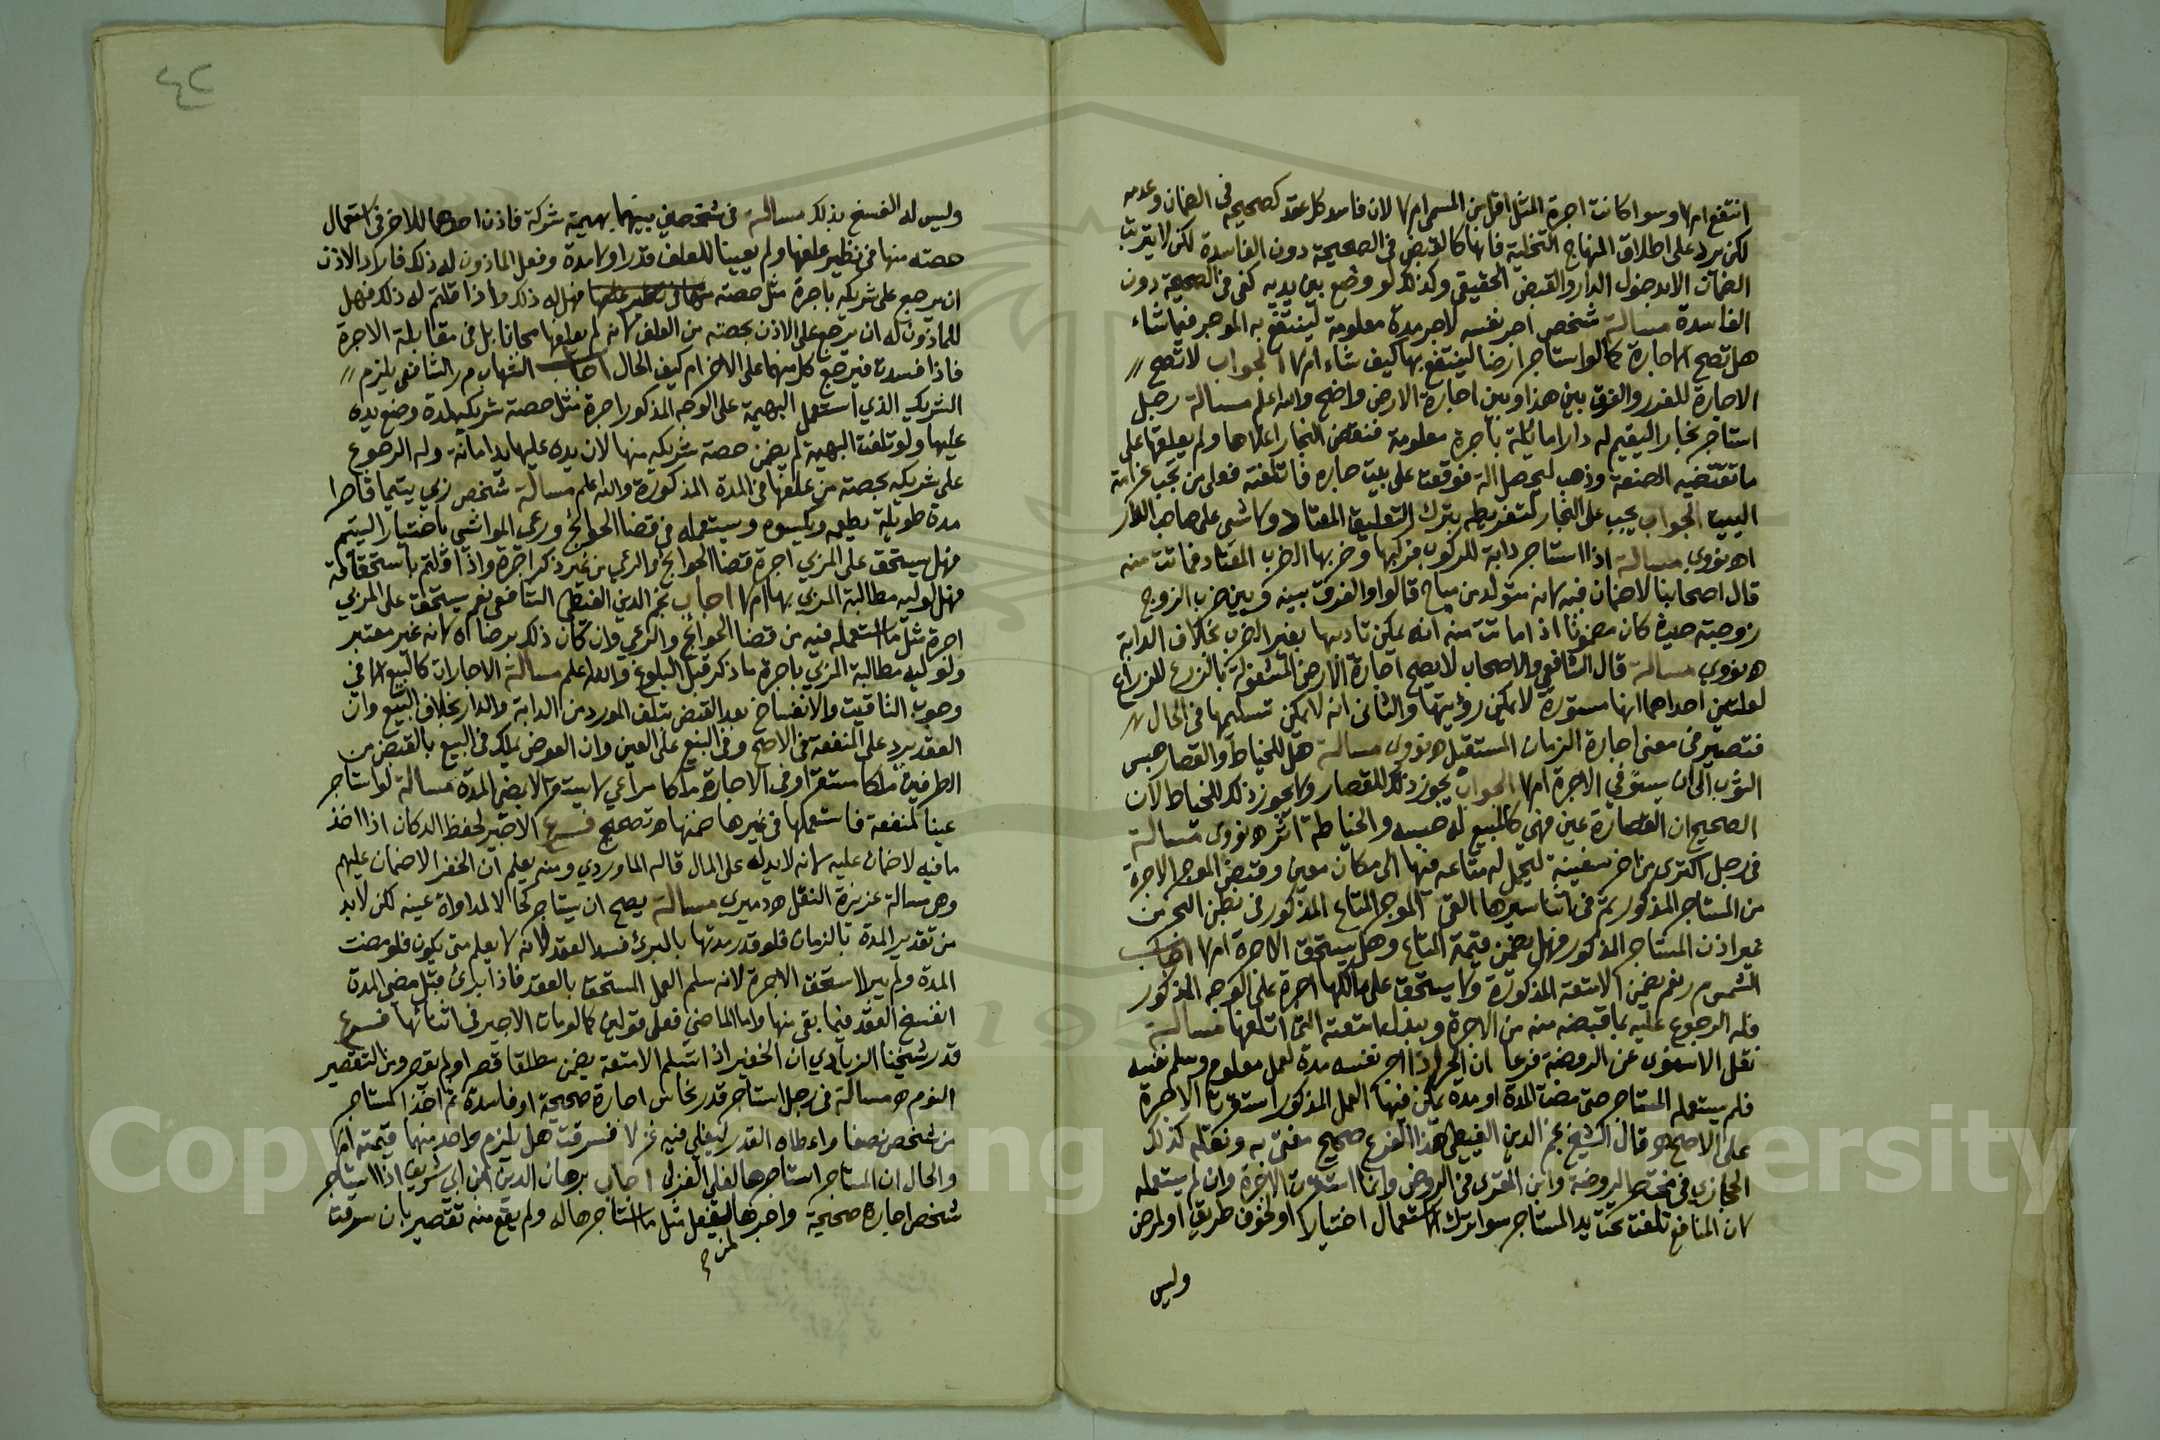 انتفع ام لا وسوا كانت اجرة المثل اقل من المسمى ام لا لان فاسد كل عقد كصحيحه في الضمان وعدمه
لكن يرد على اطلاق المنهاج التخلية فانها كالقبض في الصحيحة دون الفاسدة لكن لا يترتب
الضمان الا بدخول الدار والقبض الحقيقي وكذلك لو وضع بين يديه كفى في الصحيحة دون
الفاسدة مسالة شخص اجر نفسه لاخر مدة معلومة لينتفع به الموجر فيما شاء
هل تصح الاجارة كما لو استاجر ارضا لينتفع بها كيف شاء ام لا الجواب لا تصح
الاجارة للغرر والفرق بين هذا وبين اجارة الارض واضح والله اعلم مسالة رجل
استاجر نجارا ليقيم له دارا مائلة باجرة معلومة فنقض النجار اعلاها ولم يعلقها على
ما تقتضيه الصنعة وذهب ليحصل الة فوقعت على بيت جاره فاتلفته فعلى من تجب غرامة
البيت الجواب يجب على النجار لتفريطه بترك التعليق المعتاد ولا شي على صاحب الدار
اه نووي مسالة اذا استاجر دابة للركوب فركبها وضربها الضرب المعتاد فماتت منه
قال اصحابنا لا ضمان فيه لانه متولد من مباح قالوا والفرق بينه وبين ضرب الزوج
زوجته حيث كان مضمونا اذا ماتت منه انه يمكن تاديبها بغير الضرب بخلاف الدابة
ه نووي مسالة قال الشافعي والاصحاب لا يصح اجارة الارض المشغولة بالزرع للزراع
لعلتين احداهما انها مستورة لا يمكن رؤيتها والثاني انه لا يمكن تسليمها في الحال
فتصير في معنى اجارة الزمان المستقبل ه نووي مسالة هل للخياط والقصار حبس
الثوب الى ان يستوفي الاجرة ام لا الجواب يجوز ذلك للقصار ولا يجوز ذلك للخياط لان
الصحيح ان القصارة عين فهي كالمبيع له حبسه والخياطة اثر ه نووي مسالة
في رجل اكترى من اخر سفينة ليحمل له متاعه فيها الى مكان معين وقبض الموجر الاجرة
من المستاجر المذكور ثم في اثنا سيرها القى الموجر المتاع المذكور في بطن البحر من
غير اذن المستاجر المذكور فهل يضمن قيمة المتاع وهل يستحق الاجرة ام لا اجاب
الشمس م ر نعم يضمن الامتعة المذكورة ولا يستحق على مالكها اجرة على الوجه المذكور
فله الرجوع عليه بما قبضه منه من الاجرة وببدل امتعته التي اتلفها مسالة
نقل الاسنوى عن الروضة فرعا ان الحر اذا اجر نفسه مدة لعمل معلوم وسلم نفسه
فلم يستعمله المستاجر حتى مضت المدة او مدة يمكن فيها العمل المذكور استقرت الاجرة
على الاصح ه وقال الشيخ نجم الدين الغيطي هذا الفرع صحيح مفتى به ونقله كذلك
الحجازي في مختصر الروضة وابن المقرى في الروض وانما استقرت الاجرة وان لم يستعمله
لان المنافع تلفت تحت يد المستاجر سوا ترك الاستعمال اختيارا او لخوف طريق او لمرض
وليس
٤٢
وليس له الفسخ بذلك مسالة في شخصين بينهما بهيمة شركة فاذن احدهما للاخر في استعمال
حصته منها في نظير علفها ولم يعينا للعلف قدرا ولا مدة وفعل الماذون له ذلك فاراد الاذن
ان يرجع على شريكه باجرة مثل حصته منها في نظير علفها فهل له ذلك واذا قلتم له ذلك فهل
للماذون له ان يرجع على الاذن بحصته من العلف لانه لم يعلفها مجانا بل في مقابلة الاجرة
فاذا فسدت فيرجع كل منهما على الاخر ام كيف الحال اجاب الشهاب م ر الشافعي يلزم
الشريك الذي استعمل البهيمة على الوجه المذكور اجرة مثل حصة شريكه لمدة وضع يده
عليها ولو تلفت البهيمة لم يضمن حصة شريكه منها لان يده عليها يد امانة وله الرجوع
على شريكه بحصته من علفها في المدة المذكورة والله اعلم مسالة شخص ربي يتيما قاصرا
مدة طويلة يطعمه ويكسوه ويستعمله في قضا الحوائج ورعي المواشي باختيار اليتيم
فهل يستحق على المربي اجرة قضا الحوائج والرعي من غير ذكر اجرة واذا قلتم باستحقاقه
فهل لوليه مطالبة المربي بها ام لا اجاب نجم الدين الغيطي الشافعي نعم يستحق على المربي
اجرة مثل ما استعمله فيه من قضا الحوائج والرعي وان كان ذلك برضاه لانه غير معتبر
ولوليه مطالبة المربي باجرة ما ذكر قبل البلوغ والله اعلم مسالة الاجارات كالبيع الا في
وجوب التاقيت والانفساخ بعد القبض بتلف المورد من الدابة والدار بخلاف البيع وان
العقد يرد على المنفعة في الاصح وفي البيع على العين وان العوض يملك في البيع بالقبض من
الطرفين ملكا مستقرا وفي الاجارة ملكا مراعي لا يستقر الا بمضي المدة مسالة لو استاجر
عينا لمنفعة فاستعملها في غيرها ضمنها ه تصحيح فرع الاجير لحفظ الدكان اذا اخذ
ما فيه لا ضمان عليه لانه لا يد له على المال قاله الماوردي ومنه يعلم ان الخفرا لا ضمان عليهم
وهي مسالة عزيزة النقل ه دميري مسالة يصح ان يستاجر كحالا لمداواة عينه لكن لا بد
من تقدير المدة بالزمان فلو قدر مدتها بالبرئ فسد العقد لانه لا يعلم متى يكون فلو مضت
المدة ولم يبرا استحق الاجرة لانه سلم العمل المستحق بالعقد فاذا ابرئ قبل مضي المدة
انفسخ العقد فيما بقي منها واما الماضي فعلى قولين كما لو مات الاجير في اثنائها فرع
قدر شيخنا الزيادي ان الخفير اذا استلم الامتعة يضمن مطلقا قصر او لم يقصر ومن التقصير
النوم ه مسالة في رجل استاجر قدر نحاس اجارة صحيحة او فاسدة ثم اخذ المستاجر
من شخص نصفا واعطاه القدر ليغلي فيه غزلا فسرقت هل يلزم واحد منهما قيمته ام لا
والحال ان المستاجر استاجرها لغلي الغزل اجاب برهان الدين ابن ابي شريف اذا استاجر
شخص اجارة صحيحة واجرها ليفعل مثل ما استاجرها له ولم يقع منه تقصير بان سرقت